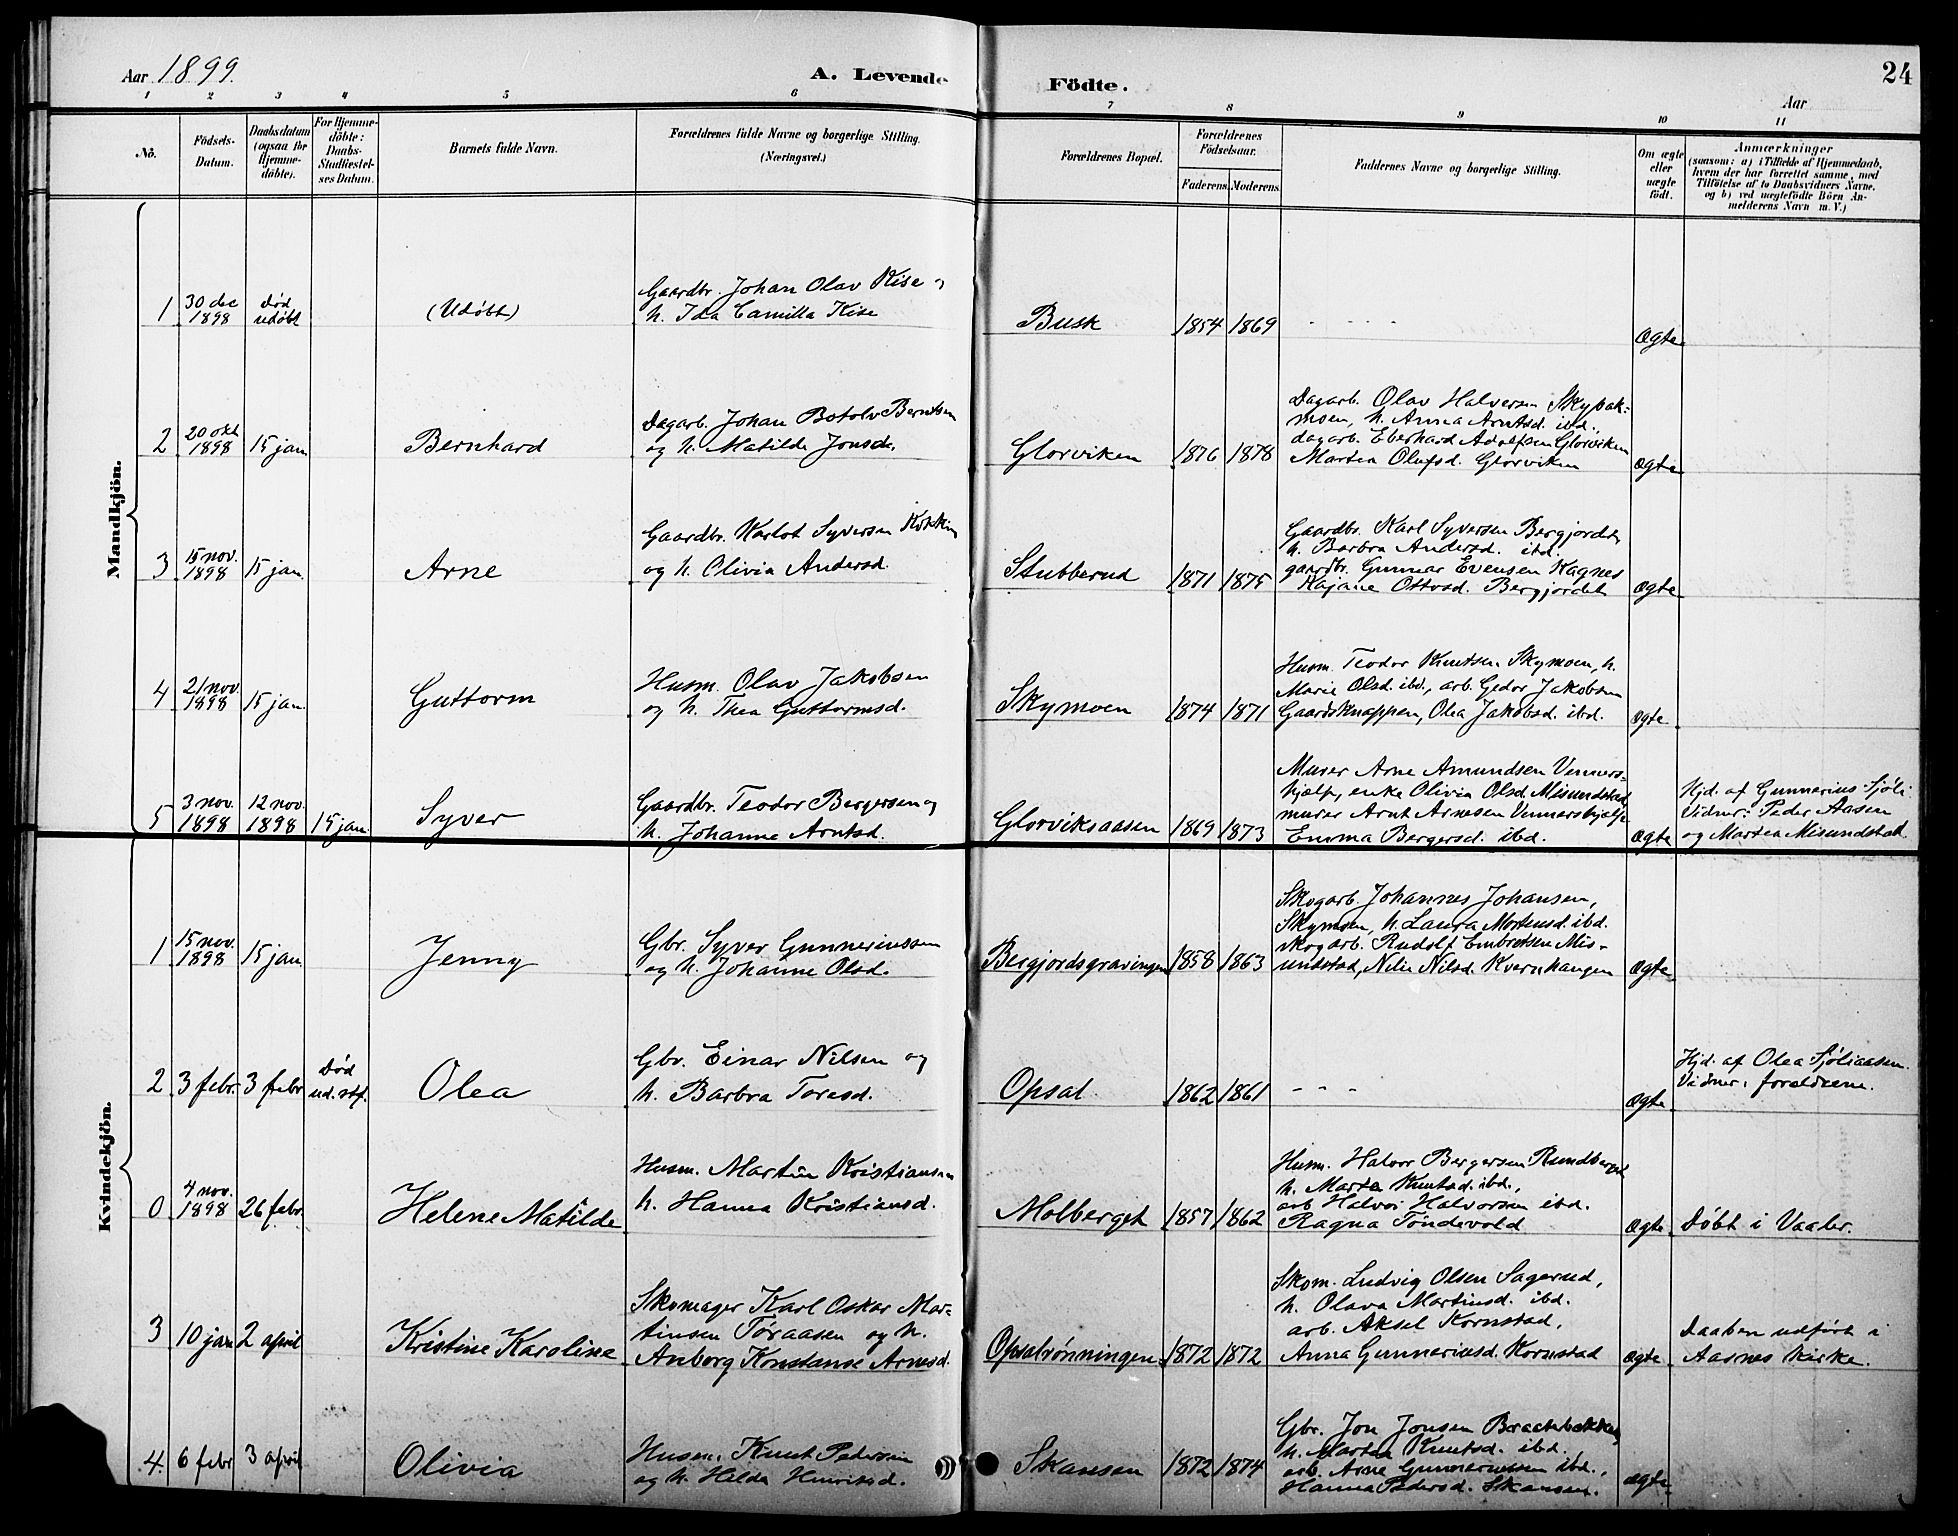 Aar 1899.
A. Levende Födte.
24
Aar
1 2 3 4 5 6 7 8 9 10 11
No.
Födsels-Datum.
Daabsdatum (ogsaa for Hjemme-döbte).
For Hjemme-döbte: Daabs-Stadfæstel-ses Datum.
Barnets fulde Navn.
Forældrenes fulde Navne og borgerlige Stilling. (Næringsvei.)
Forældrenes Bopæl.
Forældrenes Födselsaar.
Faderens. Moderens.
Faddernes Navne og borgerlige Stilling.
Om ægte eller uægte födt.
Anmærkninger
(saasom: a) i Tilfælde af Hjemmedaab,
hvem der har forrettet samme, med
Tilföielse af to Daabsvidners Navne.
og b) ved uægtefödte Börn An-
melderens Navn m. V.)
Mandkjön.
1 30 dec 1898 død udøbt (Udøbt)
Gaardbr. Johan Olav Kise og
h. Ida Camilla Kise
Busk 1854 1869 - - - - Ægte
2 20 okt 1898 15 jan Bernhard
Dagarb. Johan Botolv Berntsen
og h. Matilde Jonsd.
Glorviken 1876 1878
Dagarb. Olav Halversen Skybak-
moen, h. Anna Arntsd. ibd.,
dagarb. Eberhard Adolfsen Glorviken
Martea Olufsd. Glorviken
Ægte
3 15 nov. 1898 15 jan. Arne
Gaardbr. Karlot Syversen
og h. Olivia Andersd.
Stubberud 1871 1875
Gaardbr. Karl Syversen Bergjordet
h. Barbra Andersd. ibd.
gaardbr. Gunnar Evensen Kagnes
Kajane Ottosd. Bergjordet
Ægte
4 21 nov. 1898 15 jan. Guttorm
Husm. Olav Jakobsen
og h. Thea Guttormsd.
Skymoen 1874 1871
Husm. Teodor Knutsen Skymoen, h.
Marie Olsd. ibd., arb. Gedor Jakobsen
Gaardsknappen, Olea Jakobsd. ibd.
Ægte
5 3 nov. 1898 12 nov. 1898 15 jan. Syver
Gaardbr. Teodor Bergersen og
h. Johanne Arntsd.
Glorviksaasen 1869 1873
Murer Arne Amundsen Venners-
hjælp, enke Olivia Olsd. Misundstad
murer Arnt Arnesen Vennershjælp
Emma Bergersd. ibd.
Ægte
Hjd. af Gunnerius Sjöli
Vidner: Peder Aasen
og Martea Misundstad
Kvindekjön.
1 15 nov. 1898 15 jan. Jenny
Gbr. Syver Gunneriussen
og h. Johanne Olsd.
Bergjordsgravingen 1858 1863
Skogarb. Johannes Johansen,
Skymoen, h. Laura Mortensd. ibd.
skogarb. Rudolf Embretsen Mis-
undstad, Nilie Nilsd. Kvernhaugen
Ægte
2 3 febr. 3 febr Død ud. stf. Olea
Gbr. Einar Nilsen og
h. Barbra Toresd.
Opsal 1862 1861 - - - Ægte
Hjd. af Olea Sjöliaasen.
Vidner: forældrene.
0 4 nov. 1898 26 febr. Helene Matilde
Husm. Martin Kristiansen
h. Hanna Kristiansd.
Molberget 1857 1862
Husm. Halvor Bergersen Rundberget
h. Martea Knutsd. ibd.,
arb Halvor Halvorsen ibd.
Ragna Töndevold
Ægte Döbt i Vaaler.
3 10 jan 2 april Kristine Karoline
Skomager Karl Oskar Mar-
tinsen Töraasen og h.
Anborg Konstanse Arnesd.
Opsalrönningen 1872 1872
Skom. Ludvig Olsen Sagerud,
h. Olava Martinsd. ibd.
arb. Aksel Kornstad,
Anna Gunneriusd. Kornstad
Ægte
Daaben udfört i
Aasnes kirke.
4. 6 febr 3 april Olivia
Husm. Knut Pedersen
og h. Hilda Henriksd.
Skansen 1872 1874
Gbr. Jon Jonsen Braatebakken,
h. Martea Knutsd. ibd.
arb. Arne Gunneriussen ibd.,
Hanna Pedersd. Skansen.
Ægte